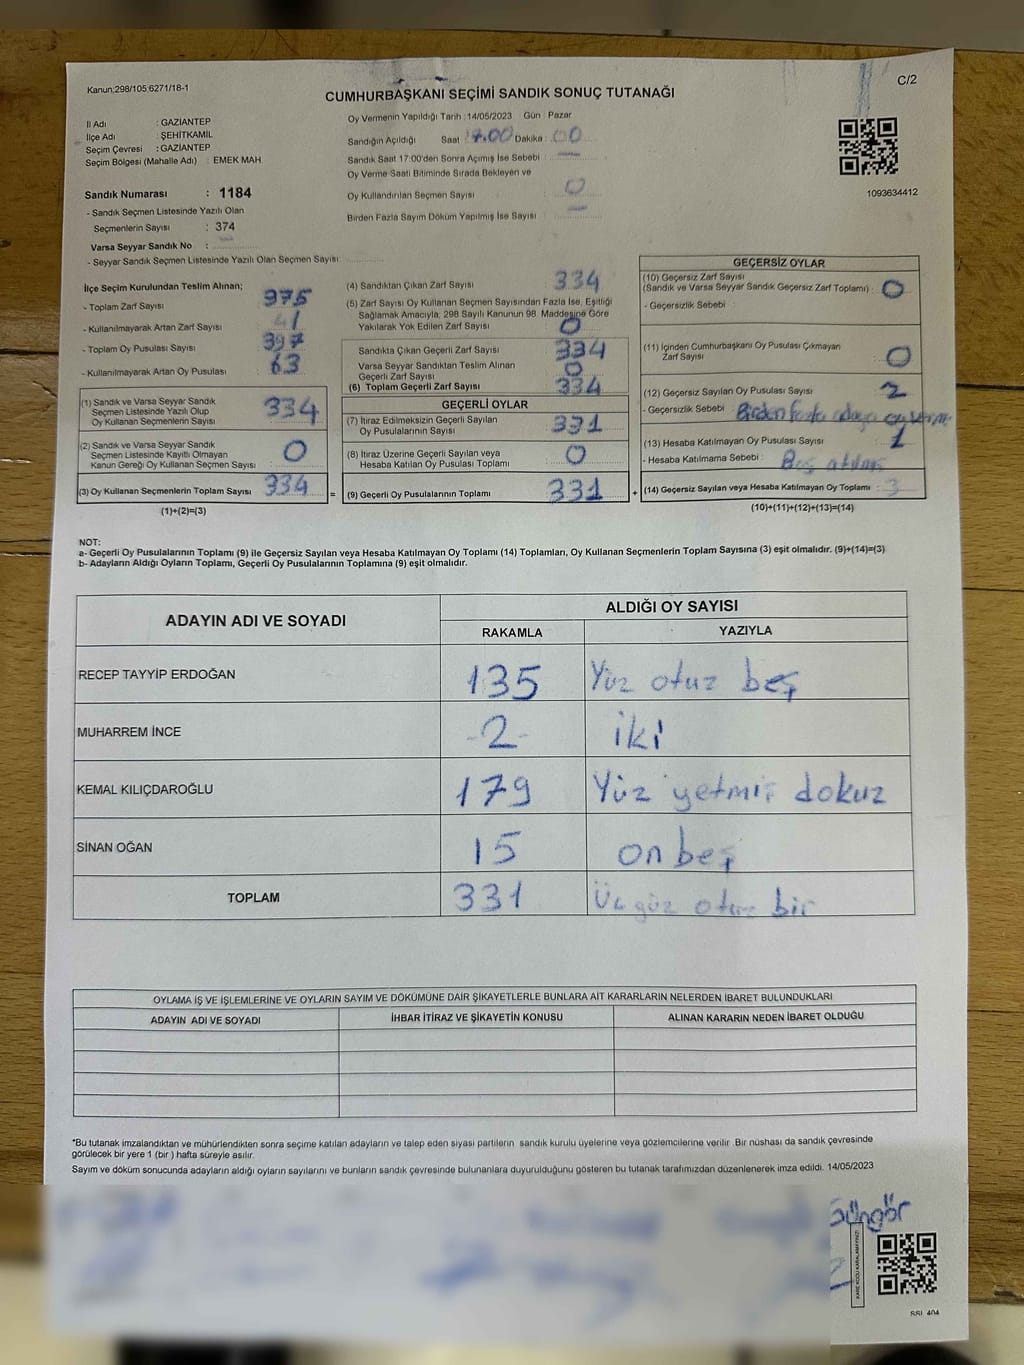 Kanun:298/105 6271/18-1
C/2
CUMHURBAŞKANI SEÇİMİ SANDIK SONUÇ TUTANAĞI
İl Adı : GAZIANTEP
İlçe Adı : ŞEHİTKAMİL
Seçim Çevresi : GAZIANTEP
Seçim Bölgesi (Mahalle Adı) : EMEK MAH.
Sandık Numarası : 1184
- Sandık Seçmen Listesinde Yazılı Olan
Seçmenlerin Sayısı : 374
Varsa Seyyar Sandık No :
- Seyyar Sandık Seçmen Listesinde Yazılı Olan Seçmen Sayısı:
Oy Vermenin Yapıldığı Tarih :14/05/2023 Gün : Pazar
Sandığın Açıldığı Saat 17.00 Dakika : 00
Sandık Saat 17:00'den Sonra Açımış İse Sebebi : —
Oy Verme Saati Bitiminde Sırada Bekleyen ve
Oy Kullandırılan Seçmen Sayısı : 0
Birden Fazla Sayım Döküm Yapılmış İse Sayısı : —
1093634412
İlçe Seçim Kurulundan Teslim Alınan;
- Toplam Zarf Sayısı : 375
- Kullanılmayarak Artan Zarf Sayısı : 41
- Toplam Oy Pusulası Sayısı : 397
- Kullanılmayarak Artan Oy Pusulası : 63
(1) Sandık ve Varsa Seyyar Sandık
Seçmen Listesinde Yazılı Olup
Oy Kullanan Seçmenlerin Sayısı : 334
(2) Sandık ve Varsa Seyyar Sandık
Seçmen Listesinde Kayıtlı Olmayan
Kanun Gereği Oy Kullanan Seçmen Sayısı : 0
(3) Oy Kullanan Seçmenlerin Toplam Sayısı : 334
=
(1)+(2)=(3)
(4) Sandıktan Çıkan Zarf Sayısı : 334
(5) Zarf Sayısı Oy Kullanan Seçmen Sayısından Fazla İse, Eşitliği
Sağlamak Amacıyla, 298 Sayılı Kanunun 98. Maddesine Göre
Yakılarak Yok Edilen Zarf Sayısı : 0
Sandıkta Çıkan Geçerli Zarf Sayısı : 334
Varsa Seyyar Sandıktan Teslim Alınan
Geçerli Zarf Sayısı : 0
(6) Toplam Geçerli Zarf Sayısı : 334
GEÇERLİ OYLAR
(7) İtiraz Edilmeksizin Geçerli Sayılan
Oy Pusulalarının Sayısı : 331
(8) İtiraz Üzerine Geçerli Sayılan veya
Hesaba Katılan Oy Pusulası Toplamı : 0
(9) Geçerli Oy Pusulalarının Toplamı : 331
+
GEÇERSİZ OYLAR
(10) Geçersiz Zarf Sayısı
(Sandık ve Varsa Seyyar Sandık Geçersiz Zarf Toplamı) : 0
- Geçersizlik Sebebi :
(11) İçinden Cumhurbaşkanı Oy Pusulası Çıkmayan
Zarf Sayısı : 0
(12) Geçersiz Sayılan Oy Pusulası Sayısı : 2
- Geçersizlik Sebebi : Birden fazla adaya oy verm.
(13) Hesaba Katılmayan Oy Pusulası Sayısı : 1
- Hesaba Katılmama Sebebi : Boş atılmış
(14) Geçersiz Sayılan veya Hesaba Katılmayan Oy Toplamı : 3
(10)+(11)+(12)+(13)=(14)
NOT:
a- Geçerli Oy Pusulalarının Toplamı (9) ile Geçersiz Sayılan veya Hesaba Katılmayan Oy Toplamı (14) Toplamları, Oy Kullanan Seçmenlerin Toplam Sayısına (3) eşit olmalıdır. (9)+(14)=(3)
b- Adayların Aldığı Oyların Toplamı, Geçerli Oy Pusulalarının Toplamına (9) eşit olmalıdır.
ADAYIN ADI VE SOYADI
ALDIĞI OY SAYISI
RAKAMLA YAZIYLA
RECEP TAYYİP ERDOĞAN 135 Yüz otuz beş
MUHARREM İNCE -2- iki
KEMAL KILIÇDAROĞLU 179 Yüz yetmiş dokuz
SİNAN OĞAN 15 on beş
TOPLAM 331 Üç yüz otuz bir
OYLAMA İŞ VE İŞLEMLERİNE VE OYLARIN SAYIM VE DÖKÜMÜNE DAİR ŞİKAYETLERLE BUNLARA AİT KARARLARIN NELERDEN İBARET BULUNDUKLARI
ADAYIN ADI VE SOYADI İHBAR İTİRAZ VE ŞİKAYETİN KONUSU ALINAN KARARIN NEDEN İBARET OLDUĞU
*Bu tutanak imzalandıktan ve mühürlendikten sonra seçime katılan adayların ve talep eden siyasi partilerin sandık kurulu üyelerine veya gözlemcilerine verilir .Bir nüshası da sandık çevresinde
görülecek bir yere 1 (bir ) hafta süreyle asılır.
Sayım ve döküm sonucunda adayların aldığı oyların sayılarını ve bunların sandık çevresinde bulunanlara duyurulduğunu gösteren bu tutanak tarafımızdan düzenlenerek imza edildi. 14/05/2023
Güngör